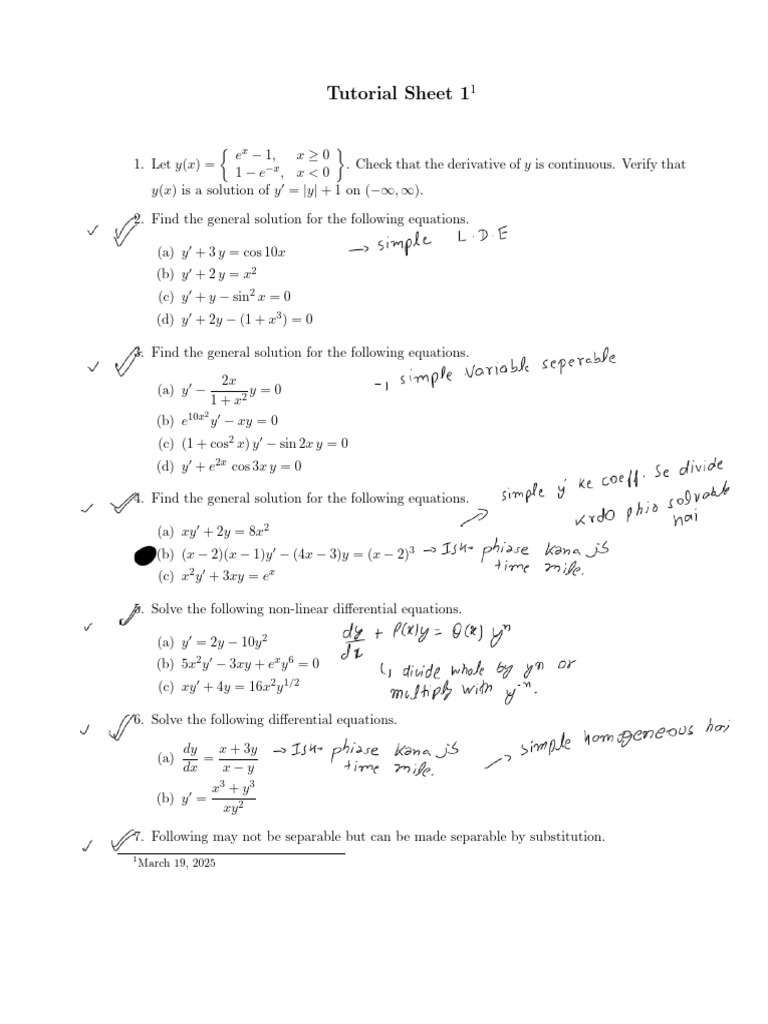 Tutorial Sheet 1¹
1. Let y(x) = { eˣ − 1, x ≥ 0
1 − e⁻ˣ, x < 0 }. Check that the derivative of y is continuous. Verify that
y(x) is a solution of y′ = |y| + 1 on (−∞, ∞).
2. Find the general solution for the following equations.
(a) y′ + 3 y = cos 10x → simple L.D.E
(b) y′ + 2 y = x²
(c) y′ + y − sin² x = 0
(d) y′ + 2y − (1 + x³) = 0
3. Find the general solution for the following equations.
(a) y′ − 2x/(1 + x²) y = 0 → simple Variable seperable
(b) e^(10x²) y′ − xy = 0
(c) (1 + cos² x) y′ − sin 2x y = 0
(d) y′ + e^(2x) cos 3x y = 0
4. Find the general solution for the following equations. simple y' ke coeff. se divide
krdo phir solvable
hai
(a) xy′ + 2y = 8x²
(b) (x − 2)(x − 1)y′ − (4x − 3)y = (x − 2)³ → Isko phirse kana jis
time mile.
(c) x²y′ + 3xy = eˣ
5. Solve the following non-linear differential equations.
(a) y′ = 2y − 10y² dy/dx + P(x)y = Q(x) yⁿ
(b) 5x²y′ − 3xy + eˣy⁶ = 0 ↳ divide whole by yⁿ or
(c) xy′ + 4y = 16x²y^(1/2) multiply with y⁻ⁿ.
6. Solve the following differential equations.
(a) dy/dx = (x + 3y)/(x − y) → Isko phirse kana jis
time mile. → simple homogeneous hai
(b) y′ = (x³ + y³)/(xy²)
7. Following may not be separable but can be made separable by substitution.
¹March 19, 2025